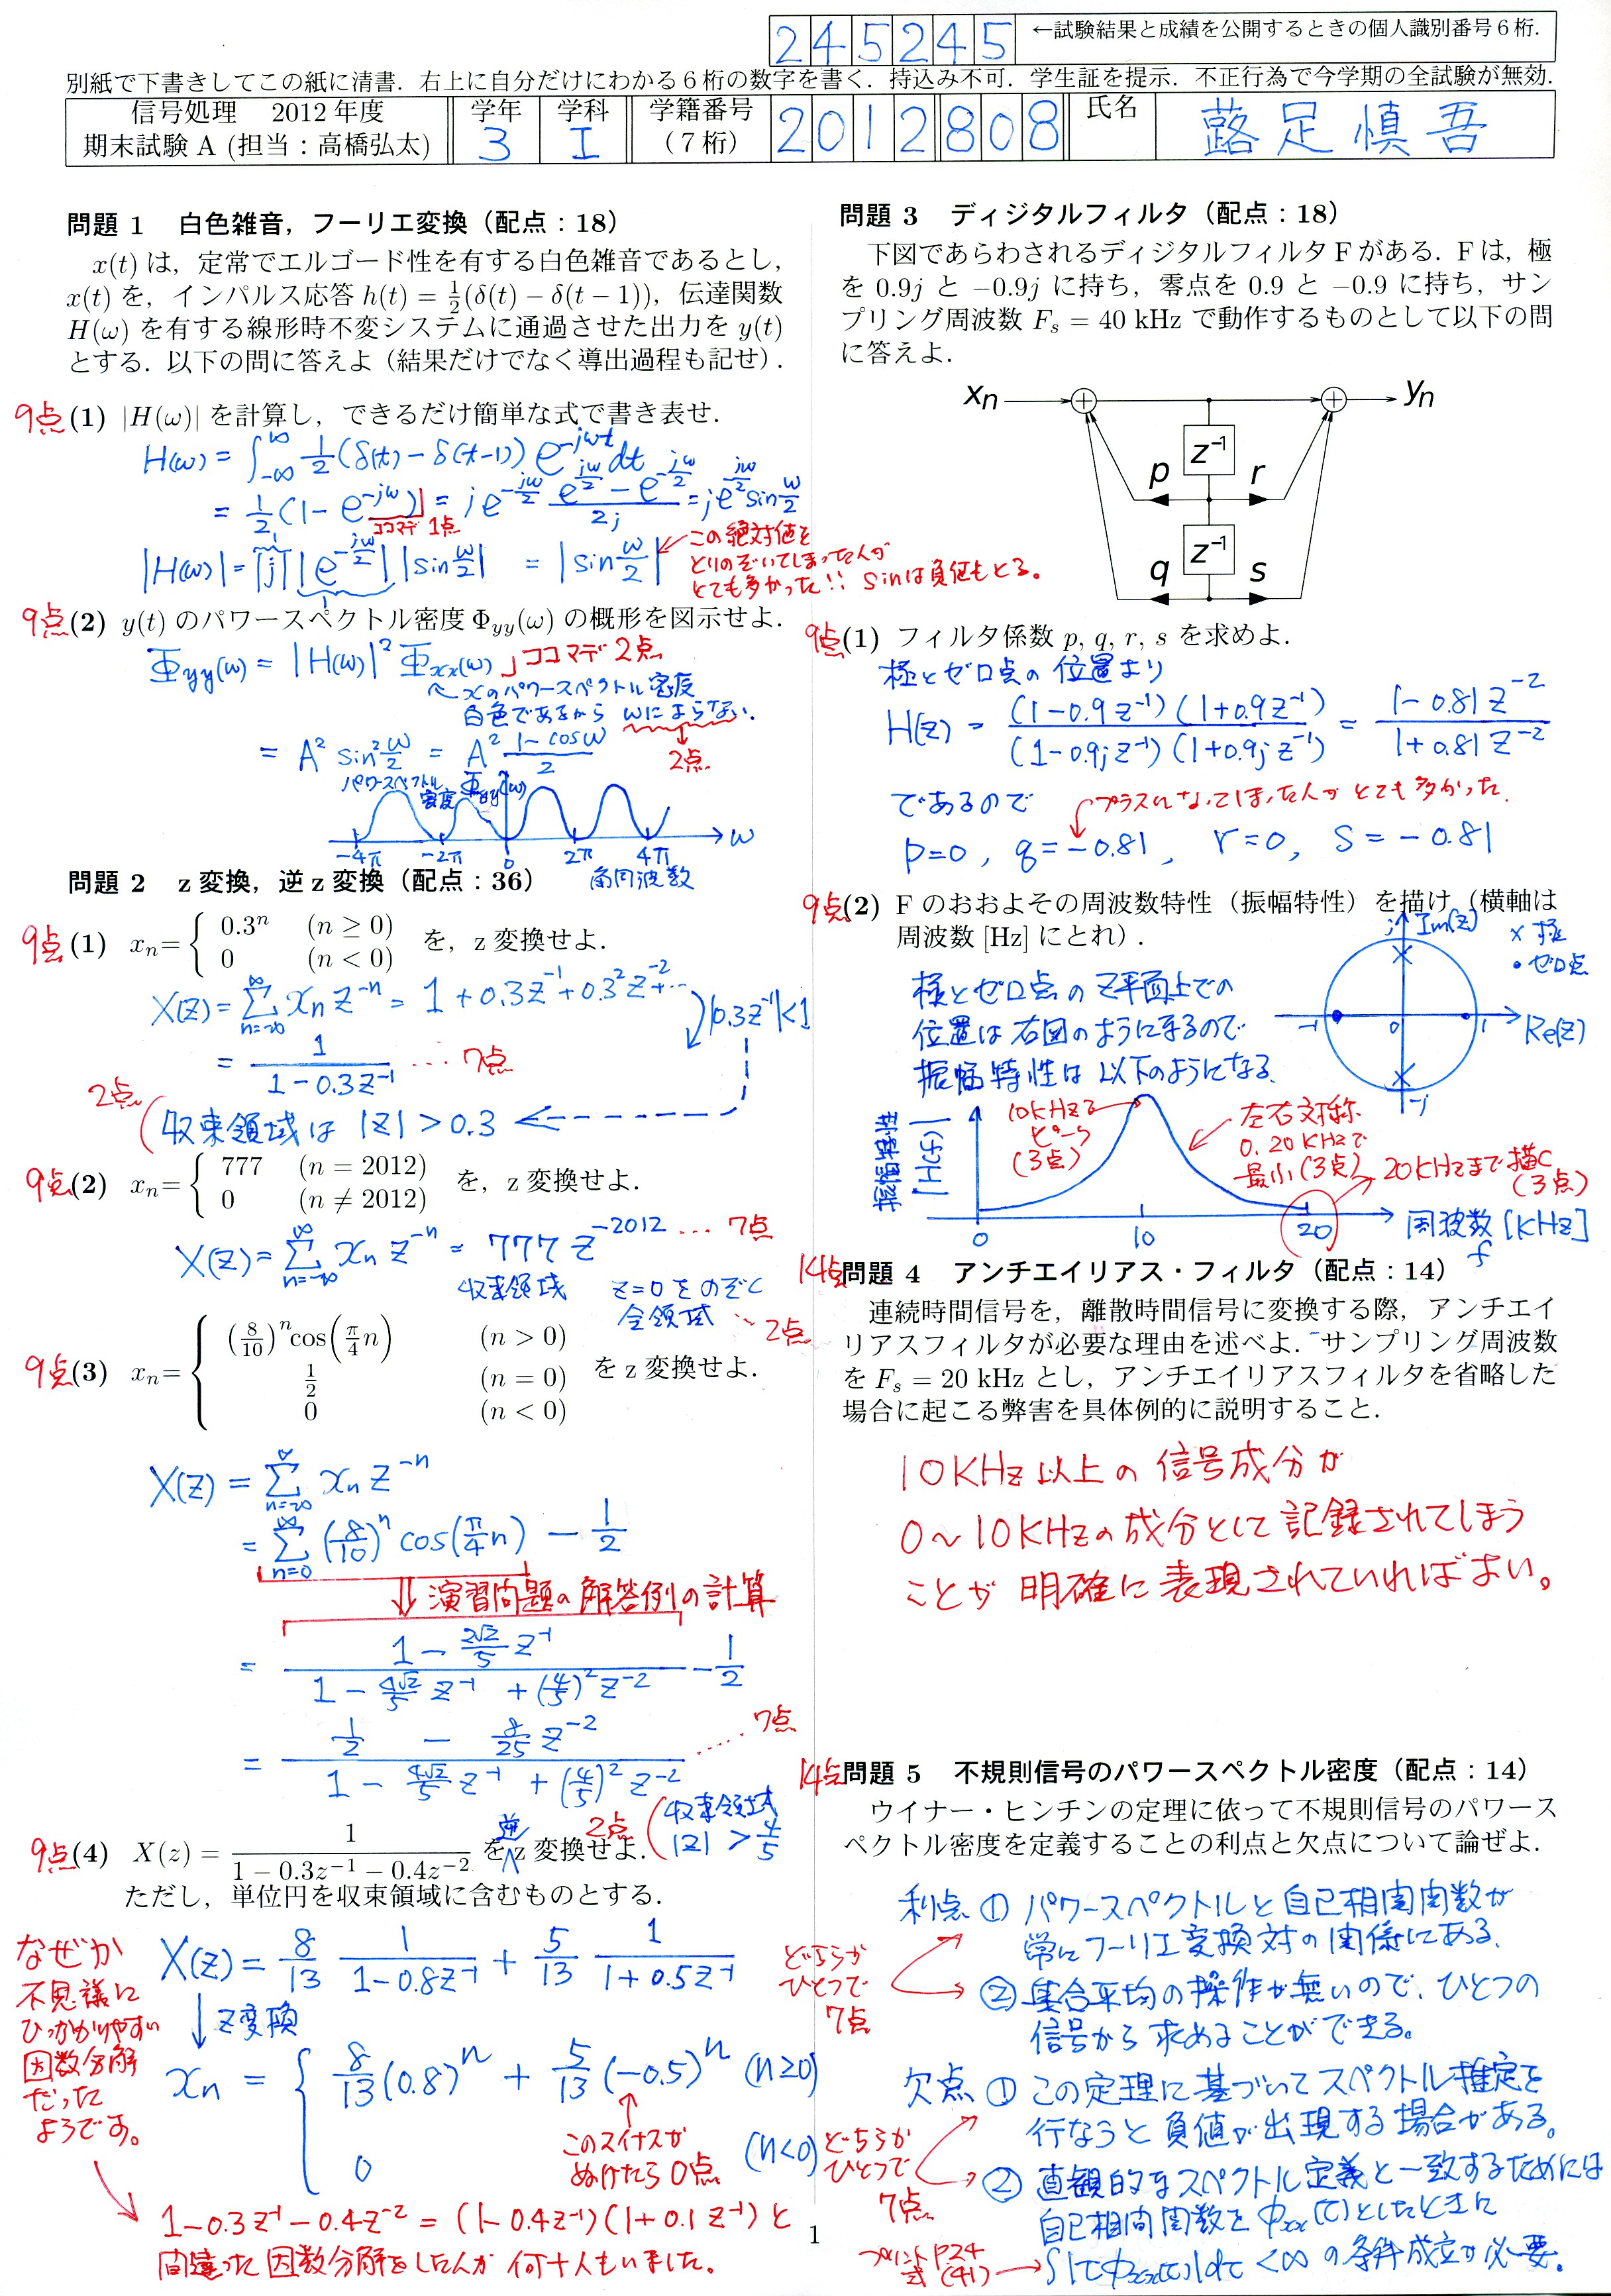 245245 ←試験結果と成績を公開するときの個人識別番号6桁.
別紙で下書きしてこの紙に清書. 右上に自分だけにわかる6桁の数字を書く. 持込み不可. 学生証を提示. 不正行為で今学期の全試験が無効.
信号処理 2012年度
期末試験 A (担当:高橋弘太)
学年 3
学科 I
学籍番号 (7桁) 2012808
氏名 蕗足慎吾
問題 1 白色雑音, フーリエ変換(配点:18)
x(t) は, 定常でエルゴード性を有する白色雑音であるとし,
x(t) を, インパルス応答 h(t) = 1/2(δ(t) − δ(t − 1)), 伝達関数
H(ω) を有する線形時不変システムに通過させた出力を y(t)
とする. 以下の問に答えよ(結果だけでなく導出過程も記せ).
9点 (1) |H(ω)| を計算し, できるだけ簡単な式で書き表せ.
H(ω) = ∫_{-∞}^{∞} 1/2 (δ(t) − δ(t−1)) e^{-jωt} dt
= 1/2 (1 − e^{-jω}) = j e^{-jω/2} (e^{jω/2} − e^{-jω/2})/2j = j e^{jω/2} sin ω/2
ココマデ 1点
|H(ω)| = |j| |e^{-jω/2}| |sin ω/2| = |sin ω/2|
1 1
この絶対値を
とりのぞいてしまった人が
とても多かった!! sinは負値もとる。
9点 (2) y(t) のパワースペクトル密度 Φyy(ω) の概形を図示せよ.
Φyy(ω) = |H(ω)|² Φxx(ω) 」ココマデ 2点
xのパワースペクトル密度
白色であるから ωによらない.
2点
= A² sin² ω/2 = A² (1 − cosω)/2
パワースペクトル密度 Φyy(ω)
-4π -2π 0 2π 4π ω
角周波数
問題 2 z 変換, 逆 z 変換(配点:36)
9点 (1) xn = { 0.3^n (n ≥ 0)
0 (n < 0) を, z 変換せよ.
X(z) = Σ_{n=-∞}^{∞} xn z^{-n} = 1 + 0.3z^{-1} + 0.3²z^{-2} + …
|0.3z^{-1}| < 1
= 1/(1 − 0.3z^{-1}) … 7点
2点 (収束領域は |z| > 0.3
9点 (2) xn = { 777 (n = 2012)
0 (n ≠ 2012) を, z 変換せよ.
X(z) = Σ_{n=-∞}^{∞} xn z^{-n} = 777 z^{-2012} … 7点
収束領域 z=0をのぞく
全領域 … 2点
9点 (3) xn = { (8/10)^n cos(π/4 n) (n > 0)
1/2 (n = 0) を z 変換せよ.
0 (n < 0)
X(z) = Σ_{n=-∞}^{∞} xn z^{-n}
= Σ_{n=0}^{∞} (8/10)^n cos(π/4 n) − 1/2
⇓ 演習問題の解答例の計算
= (1 − 2√2/5 z^{-1})/(1 − 4√2/5 z^{-1} + (4/5)² z^{-2}) − 1/2
= (1/2 − 8/25 z^{-2})/(1 − 4√2/5 z^{-1} + (4/5)² z^{-2}) … 7点
2点 (収束領域
|z| > 4/5
9点 (4) X(z) = 1/(1 − 0.3z^{-1} − 0.4z^{-2}) を逆 z 変換せよ.
ただし, 単位円を収束領域に含むものとする.
X(z) = 8/13 1/(1 − 0.8z^{-1}) + 5/13 1/(1 + 0.5z^{-1})
↓ z変換
xn = { 8/13 (0.8)^n + 5/13 (−0.5)^n (n≥0)
0 (n<0)
このマイナスが
ぬけたら 0点
なぜか
不思議に
ひっかかりやすい
因数分解
だった
ようです。
1−0.3z^{-1}−0.4z^{-2} = (1−0.4z^{-1})(1+0.1z^{-1}) と
間違った因数分解をした人が何十人もいました。
問題 3 ディジタルフィルタ(配点:18)
下図であらわされるディジタルフィルタ F がある. F は, 極
を 0.9j と −0.9j に持ち, 零点を 0.9 と −0.9 に持ち, サン
プリング周波数 Fs = 40 kHz で動作するものとして以下の問
に答えよ.
xn + + yn
z⁻¹
p r
z⁻¹
q s
9点 (1) フィルタ係数 p, q, r, s を求めよ.
極とゼロ点の位置より
H(z) = (1−0.9z^{-1})(1+0.9z^{-1})/(1−0.9jz^{-1})(1+0.9jz^{-1}) = (1−0.81z^{-2})/(1+0.81z^{-2})
であるので
プラスになってしまった人がとても多かった.
p=0, q=−0.81, r=0, s=−0.81
9点 (2) F のおおよその周波数特性(振幅特性)を描け(横軸は
周波数 [Hz] にとれ).
極とゼロ点のz平面上での
位置は右図のようになるので
振幅特性は以下のようになる.
j Im(z) × 極
• ゼロ点
-1 0 1 Re(z)
-j
振幅特性 |H(f)|
10kHzで
ピーク
(3点)
左右対称
0, 20kHzで
最小(3点)
20kHzまで描く
(3点)
0 10 20 周波数 [kHz]
f
14点 問題 4 アンチエイリアス・フィルタ(配点:14)
連続時間信号を, 離散時間信号に変換する際, アンチエイ
リアスフィルタが必要な理由を述べよ. サンプリング周波数
を Fs = 20 kHz とし, アンチエイリアスフィルタを省略した
場合に起こる弊害を具体例的に説明すること.
10KHz以上の信号成分が
0〜10KHzの成分として記録されてしまう
ことが明確に表現されていればよい。
14点 問題 5 不規則信号のパワースペクトル密度(配点:14)
ウイナー・ヒンチンの定理に依って不規則信号のパワース
ペクトル密度を定義することの利点と欠点について論ぜよ.
利点 ① パワースペクトルと自己相関関数が
常にフーリエ変換対の関係にある.
② 集合平均の操作が無いので, ひとつの
信号から求めることができる。
どちらか
ひとつで
7点
欠点 ① この定理に基づいてスペクトル推定を
行なうと負値が出現する場合がある。
② 直観的なスペクトル定義と一致するためには
自己相関関数を φxx(τ) としたときに
∫|τφxx(τ)|dτ < ∞ の条件成立が必要.
どちらか
ひとつで
7点
プリント P24
式(41) →
1